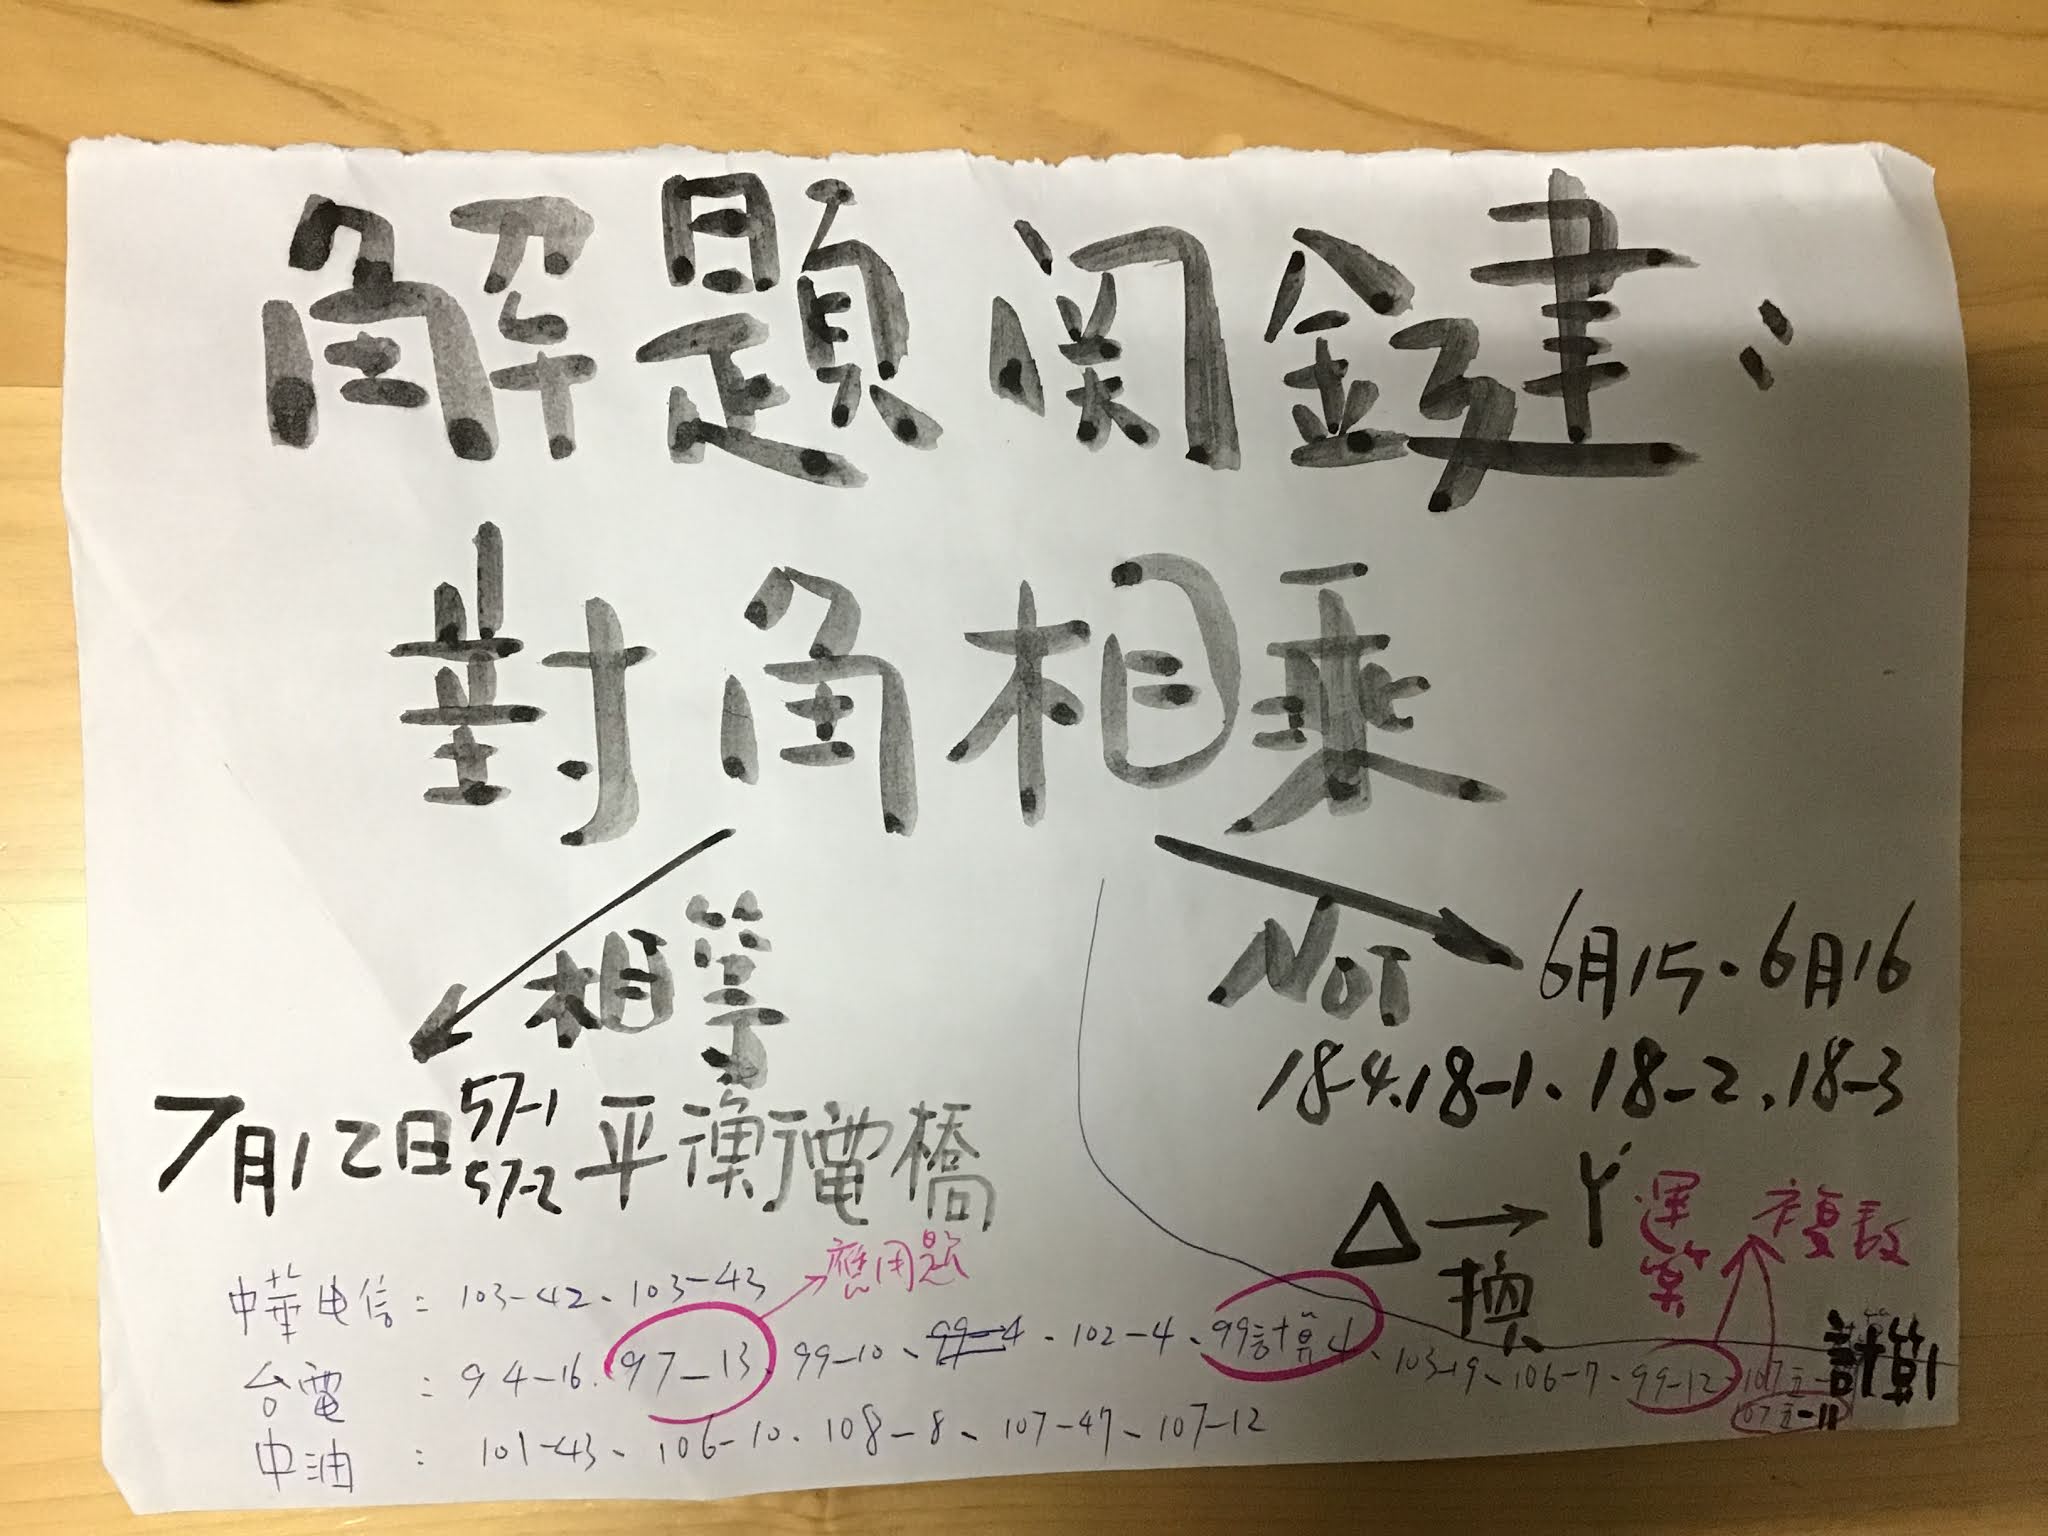 解題関鍵：
對角相乘
相等
NOT
6月15．6月16
18-4.18-1、18-2、18-3
7月12日 57-1 57-2 平衡電橋
△→Y
換
運算
複數
應用題
中華电信：103-42、103-43
台電：94-16、97-13、99-10、99-4、102-4、99計算4、103-19、106-7、99-12、
107-11
計算1
中油：101-43、106-10、108-8、107-47、107-12